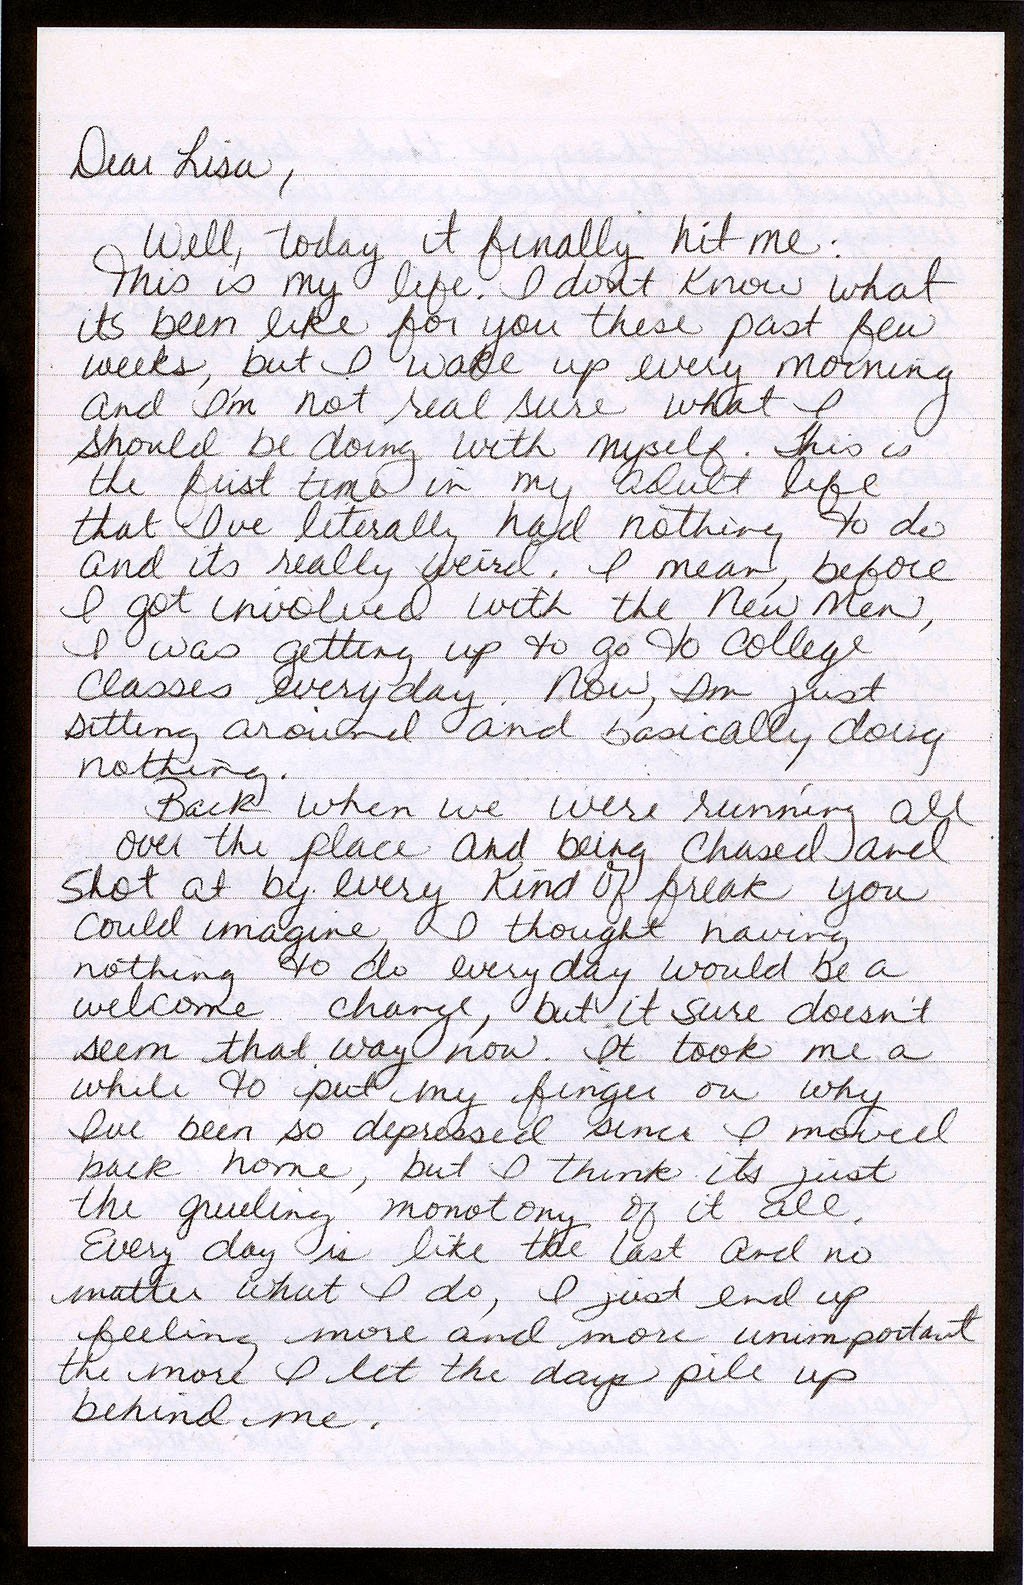 Dear Lisa,
Well, today it finally hit me:
This is my life. I don't know what
its been like for you these past few
weeks, but I wake up every morning
and I'm not real sure what I
should be doing with myself. This is
the first time in my adult life
that I've literally had nothing to do
and its really weird. I mean, before
I got involved with the New Men,
I was getting up to go to college
classes everyday. Now, I'm just
sitting around and basically doing
nothing.
Back when we were running all
over the place and being chased and
shot at by every kind of freak you
could imagine, I thought having
nothing to do everyday would be a
welcome change, but it sure doesn't
seem that way now. It took me a
while to put my finger on why
I've been so depressed since I moved
back home, but I think its just
the grueling monotony of it all.
Every day is like the last and no
matter what I do, I just end up
feeling more and more unimportant
the more I let the days pile up
behind me.